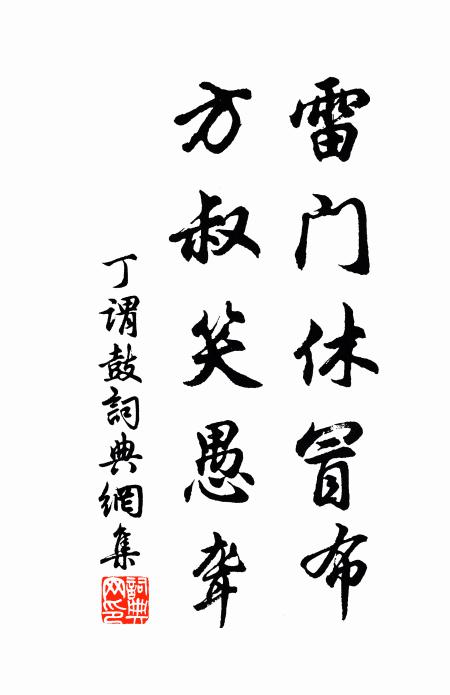 雷門休冒布
方叔笑愚聋
丁謂鼓詞典網集
詞典
网印